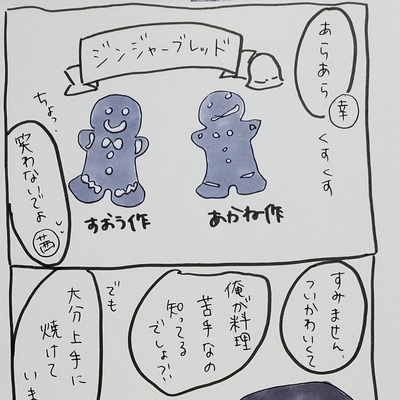 ジンジャーブレッド
あらあら
幸
くすくす
すおう作
あかね作
ちょっ、
笑わないでよ
茜
すみません、
ついかわいくて
俺が料理
苦手なの
知ってる
でしょ?!
でも
大分上手に
焼けて
いま